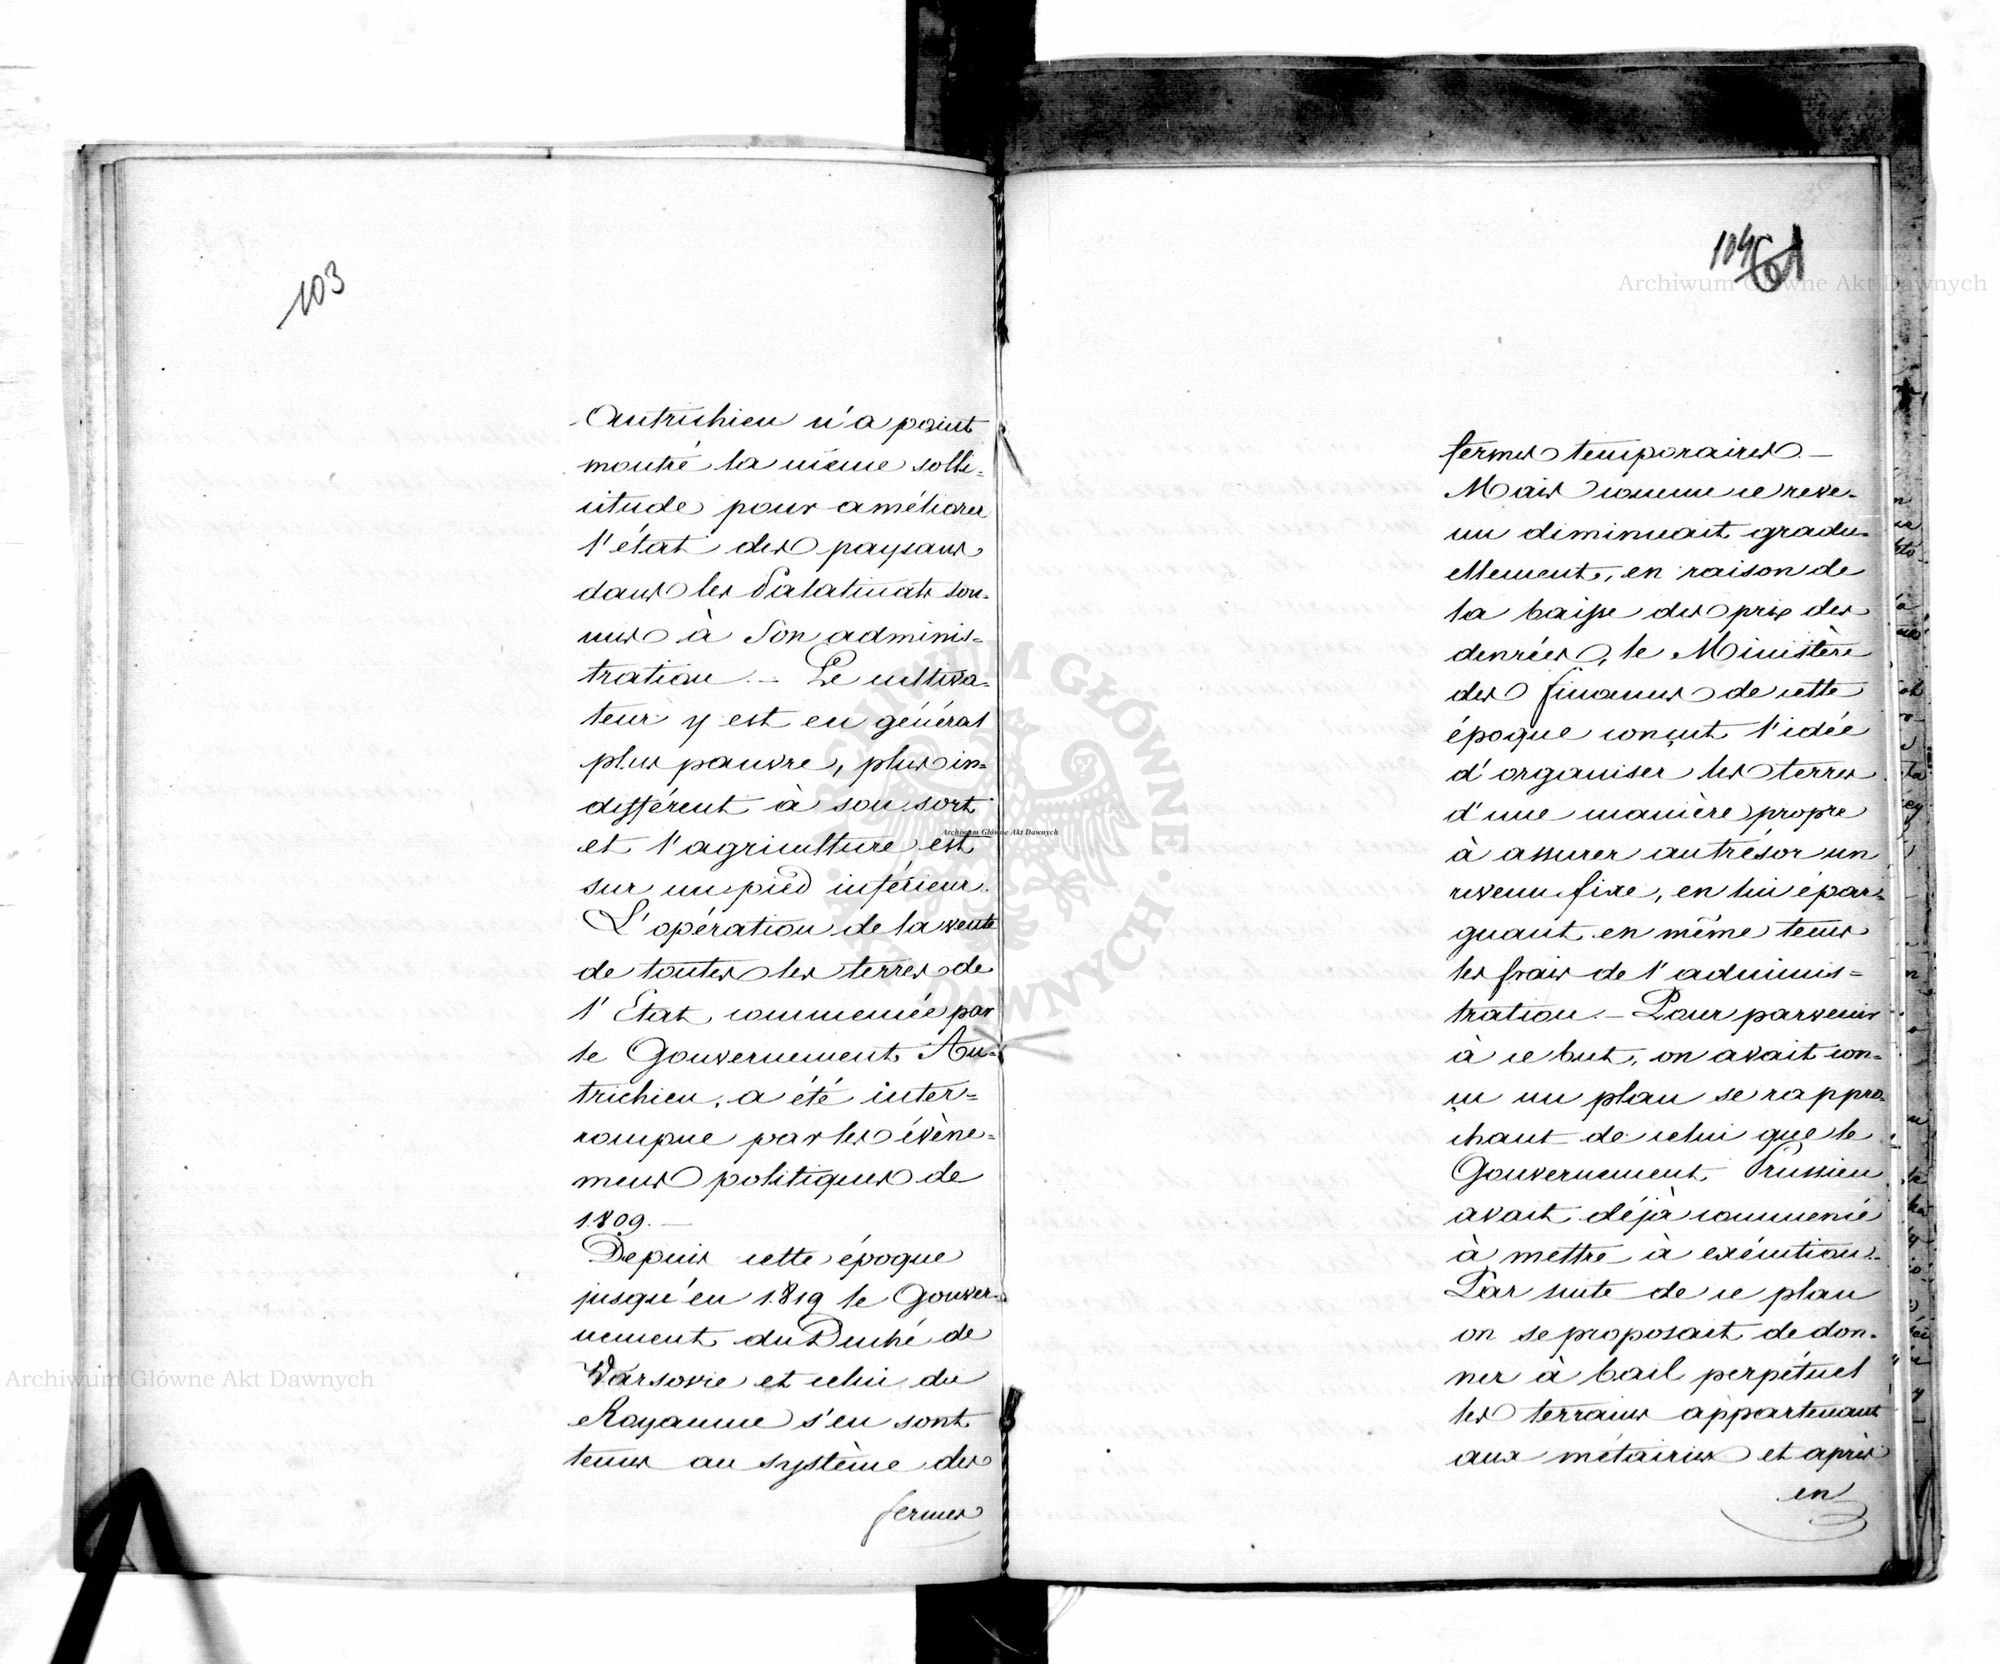 103
Autrichien n'a point
montré la même solli-
citude pour améliorer
l'état des paysans
dans les Palatinats sou-
mis à Son adminis-
tration. — Le cultiva-
teur y est en général
plus pauvre, plus in-
différent à son sort
et l'agriculture est
sur un pied inférieur.
L'opération de la vente
de toutes les terres de
l'Etat, commencée par
le Gouvernement Au-
trichien, a été inter-
rompue par les évène-
mens politiques de
1809. —
Depuis cette époque
jusqu'en 1819 le Gouver-
nement du Duché de
Varsovie et celui du
Royaume s'en sont
tenus au système des
fermes
104
61
fermes temporaires. —
Mais comme ce reve-
nu diminuait gradu-
ellement, en raison de
la baisse des prix des
denrées, le Ministère
des finances de cette
époque conçut l'idée
d'organiser les terres
d'une manière propre
à assurer au trésor un
revenu fixe, en lui épar-
gnant en même tems
les frais de l'adminis-
tration. — Pour parvenir
à ce but, on avait con-
çu un plan se rappro-
chant de celui que le
Gouvernement Prussien
avait déjà commencé
à mettre à exécution.
Par suite de ce plan
on se proposait de don-
ner à bail perpétuel
les terrains appartenant
aux métairies et après
en
Archiwum Główne Akt Dawnych
Archiwum Główne Akt Dawnych
Archiwum Główne Akt Dawnych
ARCHIWUM GŁÓWNE AKT DAWNYCH